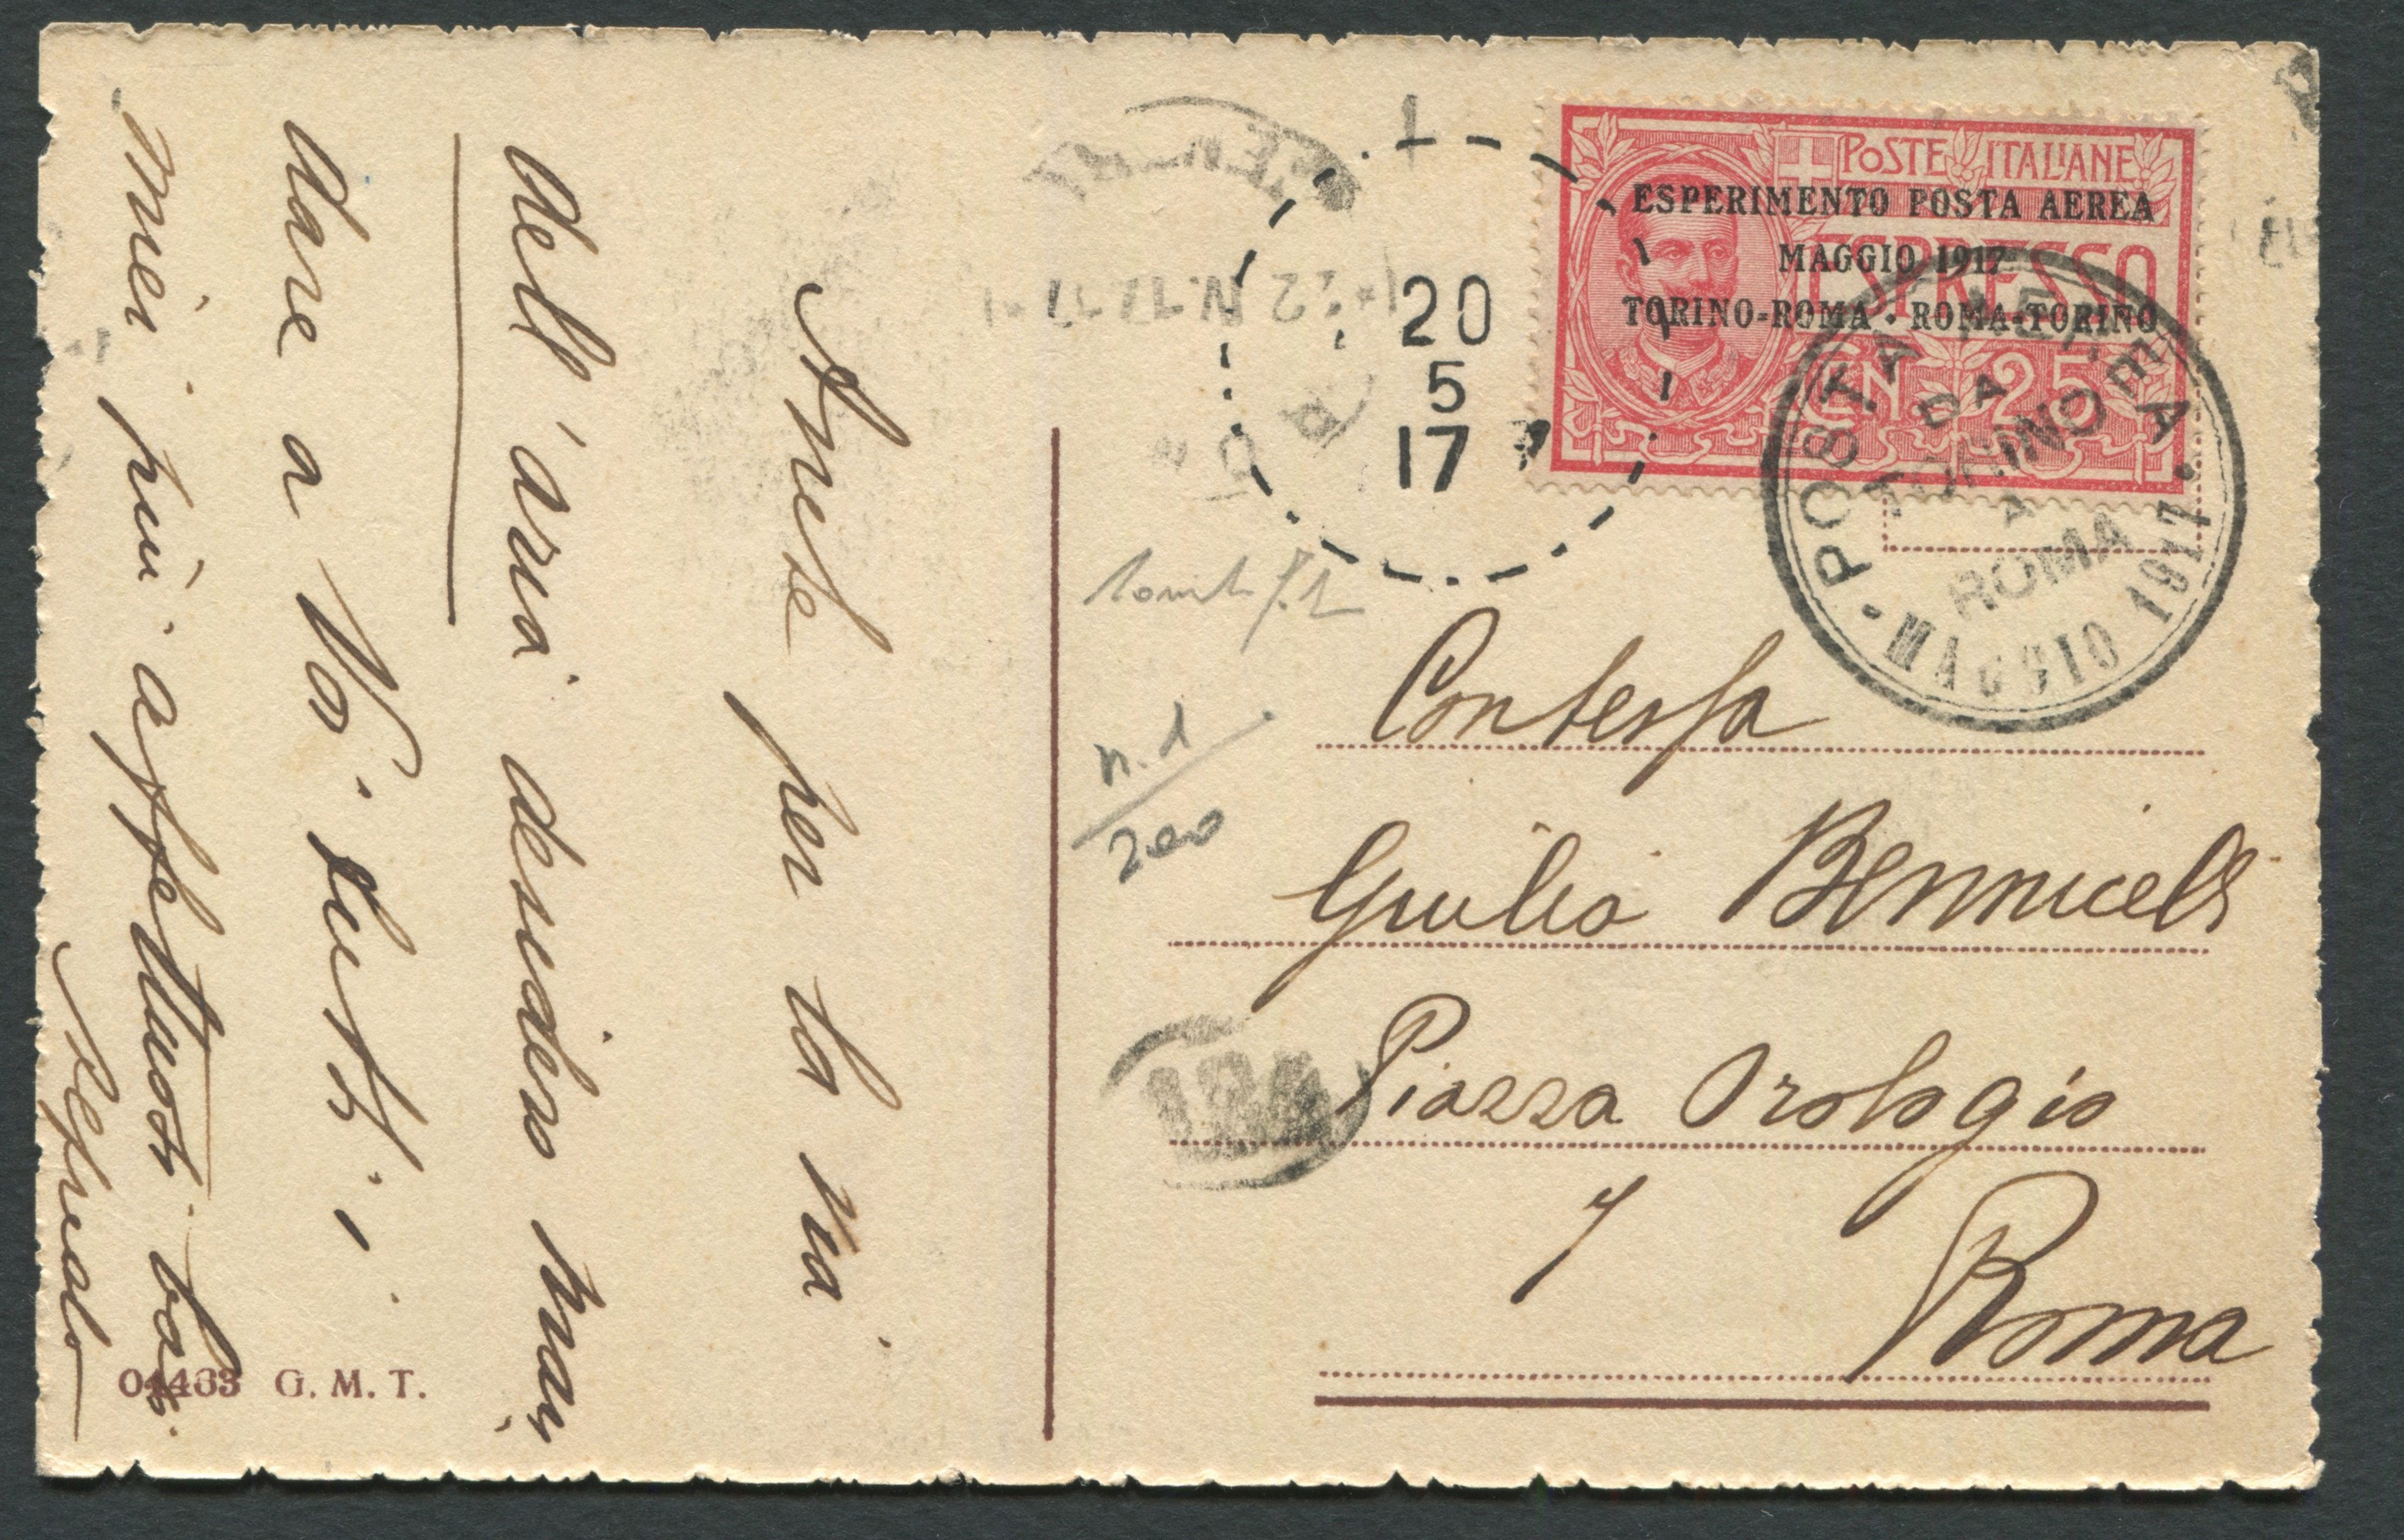 Anche per la via
dell'aria desidero man
dare a Voi tutti i
miei più affettuosi baci
Alfredo
04463 G. M. T.
POSTE ITALIANE
ESPRESSO
CEN 25
ESPERIMENTO POSTA AEREA
MAGGIO 1917
TORINO-ROMA · ROMA-TORINO
· POSTA AEREA ·
DA
TORINO
A
ROMA
MAGGIO 1917
20
5
17
n.1
200
Contessa
Giulia Bennicelli
Piazza Orologio
7
Roma